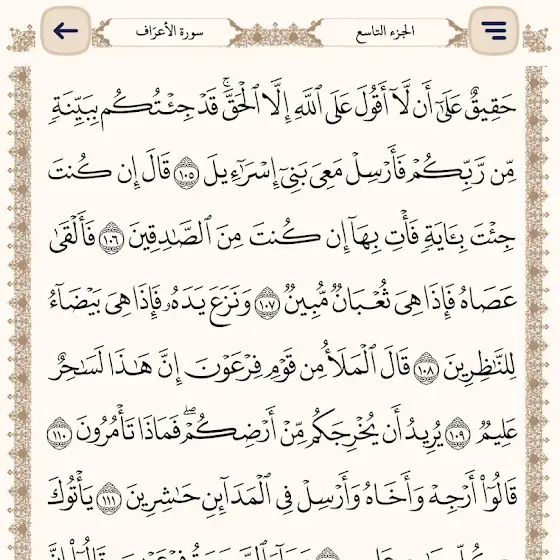 سورة الأعراف
الجزء التاسع
حَقِيقٌ عَلَىٰٓ أَن لَّآ أَقُولَ عَلَى ٱللَّهِ إِلَّا ٱلْحَقَّ ۚ قَدْ جِئْتُكُم بِبَيِّنَةٍ
مِّن رَّبِّكُمْ فَأَرْسِلْ مَعِىَ بَنِىٓ إِسْرَٰٓءِيلَ ١٠٥ قَالَ إِن كُنتَ
جِئْتَ بِـَٔايَةٍ فَأْتِ بِهَآ إِن كُنتَ مِنَ ٱلصَّـٰدِقِينَ ١٠٦ فَأَلْقَىٰ
عَصَاهُ فَإِذَا هِىَ ثُعْبَانٌ مُّبِينٌ ١٠٧ وَنَزَعَ يَدَهُۥ فَإِذَا هِىَ بَيْضَآءُ
لِلنَّـٰظِرِينَ ١٠٨ قَالَ ٱلْمَلَأُ مِن قَوْمِ فِرْعَوْنَ إِنَّ هَـٰذَا لَسَـٰحِرٌ
عَلِيمٌ ١٠٩ يُرِيدُ أَن يُخْرِجَكُم مِّنْ أَرْضِكُمْ ۖ فَمَاذَا تَأْمُرُونَ ١١٠
قَالُوٓا۟ أَرْجِهْ وَأَخَاهُ وَأَرْسِلْ فِى ٱلْمَدَآئِنِ حَـٰشِرِينَ ١١١ يَأْتُوكَ